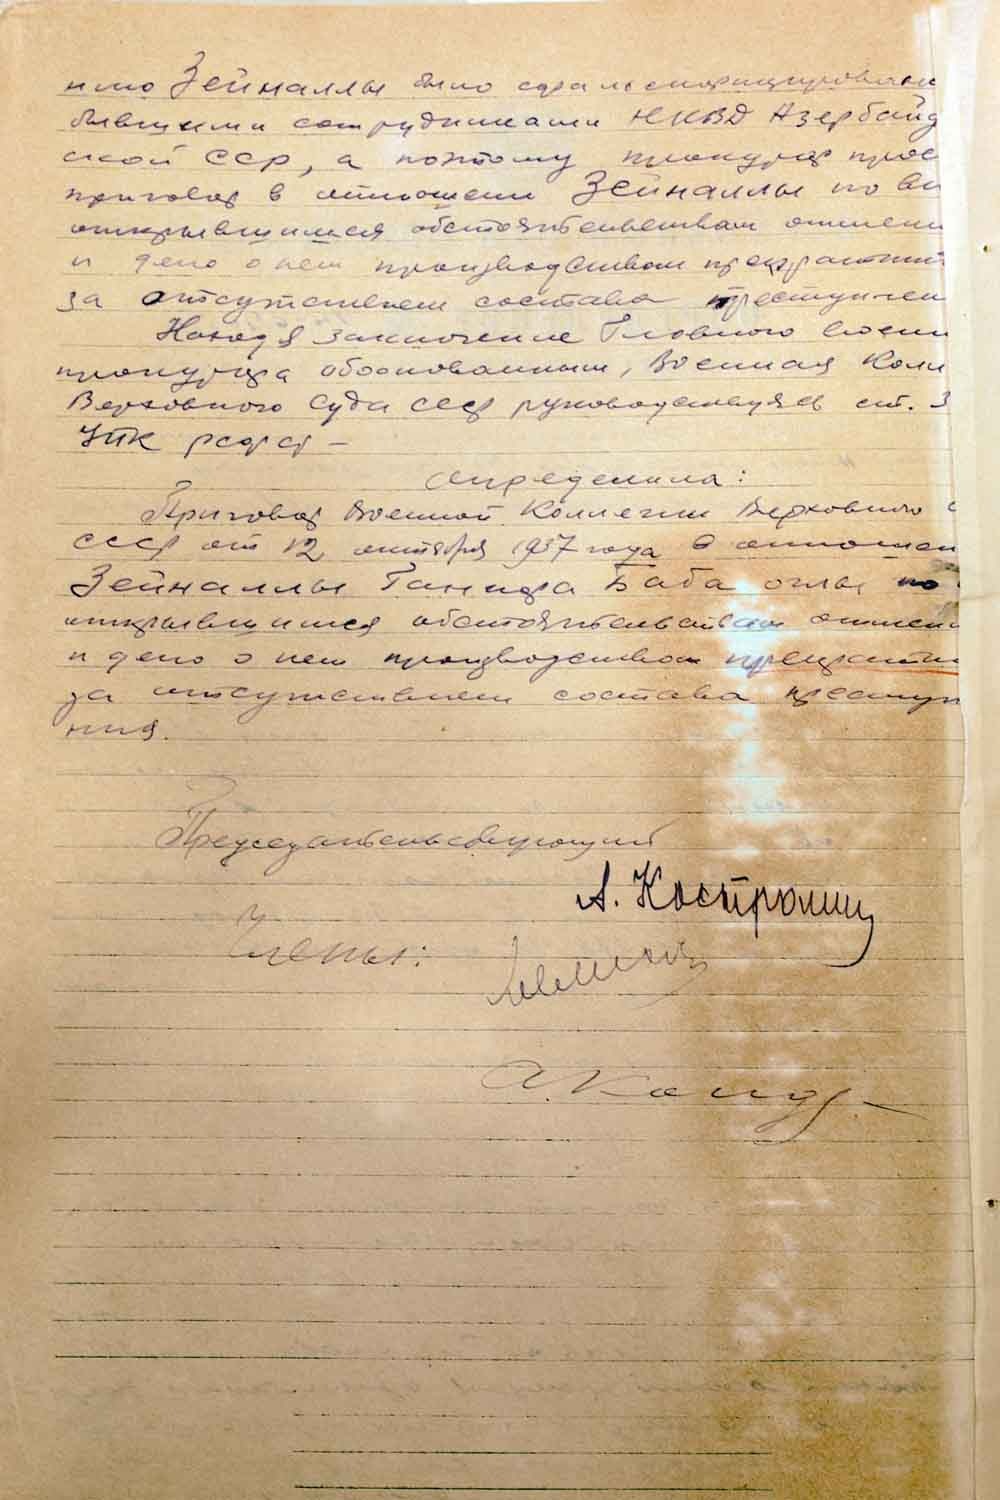 нию Зейналлы было сфальсифицирован
бывшими сотрудниками НКВД Азербайд
ской ССР, а поэтому прокурор прос
приговор в отношении Зейналлы по в
открывшимся обстоятельствам отмени
и дело о нем производством прекратит
за отсутствием состава преступлен
Находя заключение Главного военн
прокурора обоснованным, Военная Колл
Верховного Суда СССР руководствуясь ст. 3
УПК РСФСР –
определила:
Приговор Военной Коллегии Верховного С
СССР от 12 октября 1937 года в отношен
Зейналлы Ганифа Баба оглы по
открывшимся обстоятельствам отмени
и дело о нем производством прекрати
за отсутствием состава преступ
ния.
Председательствующий
А. Костромин
Члены: